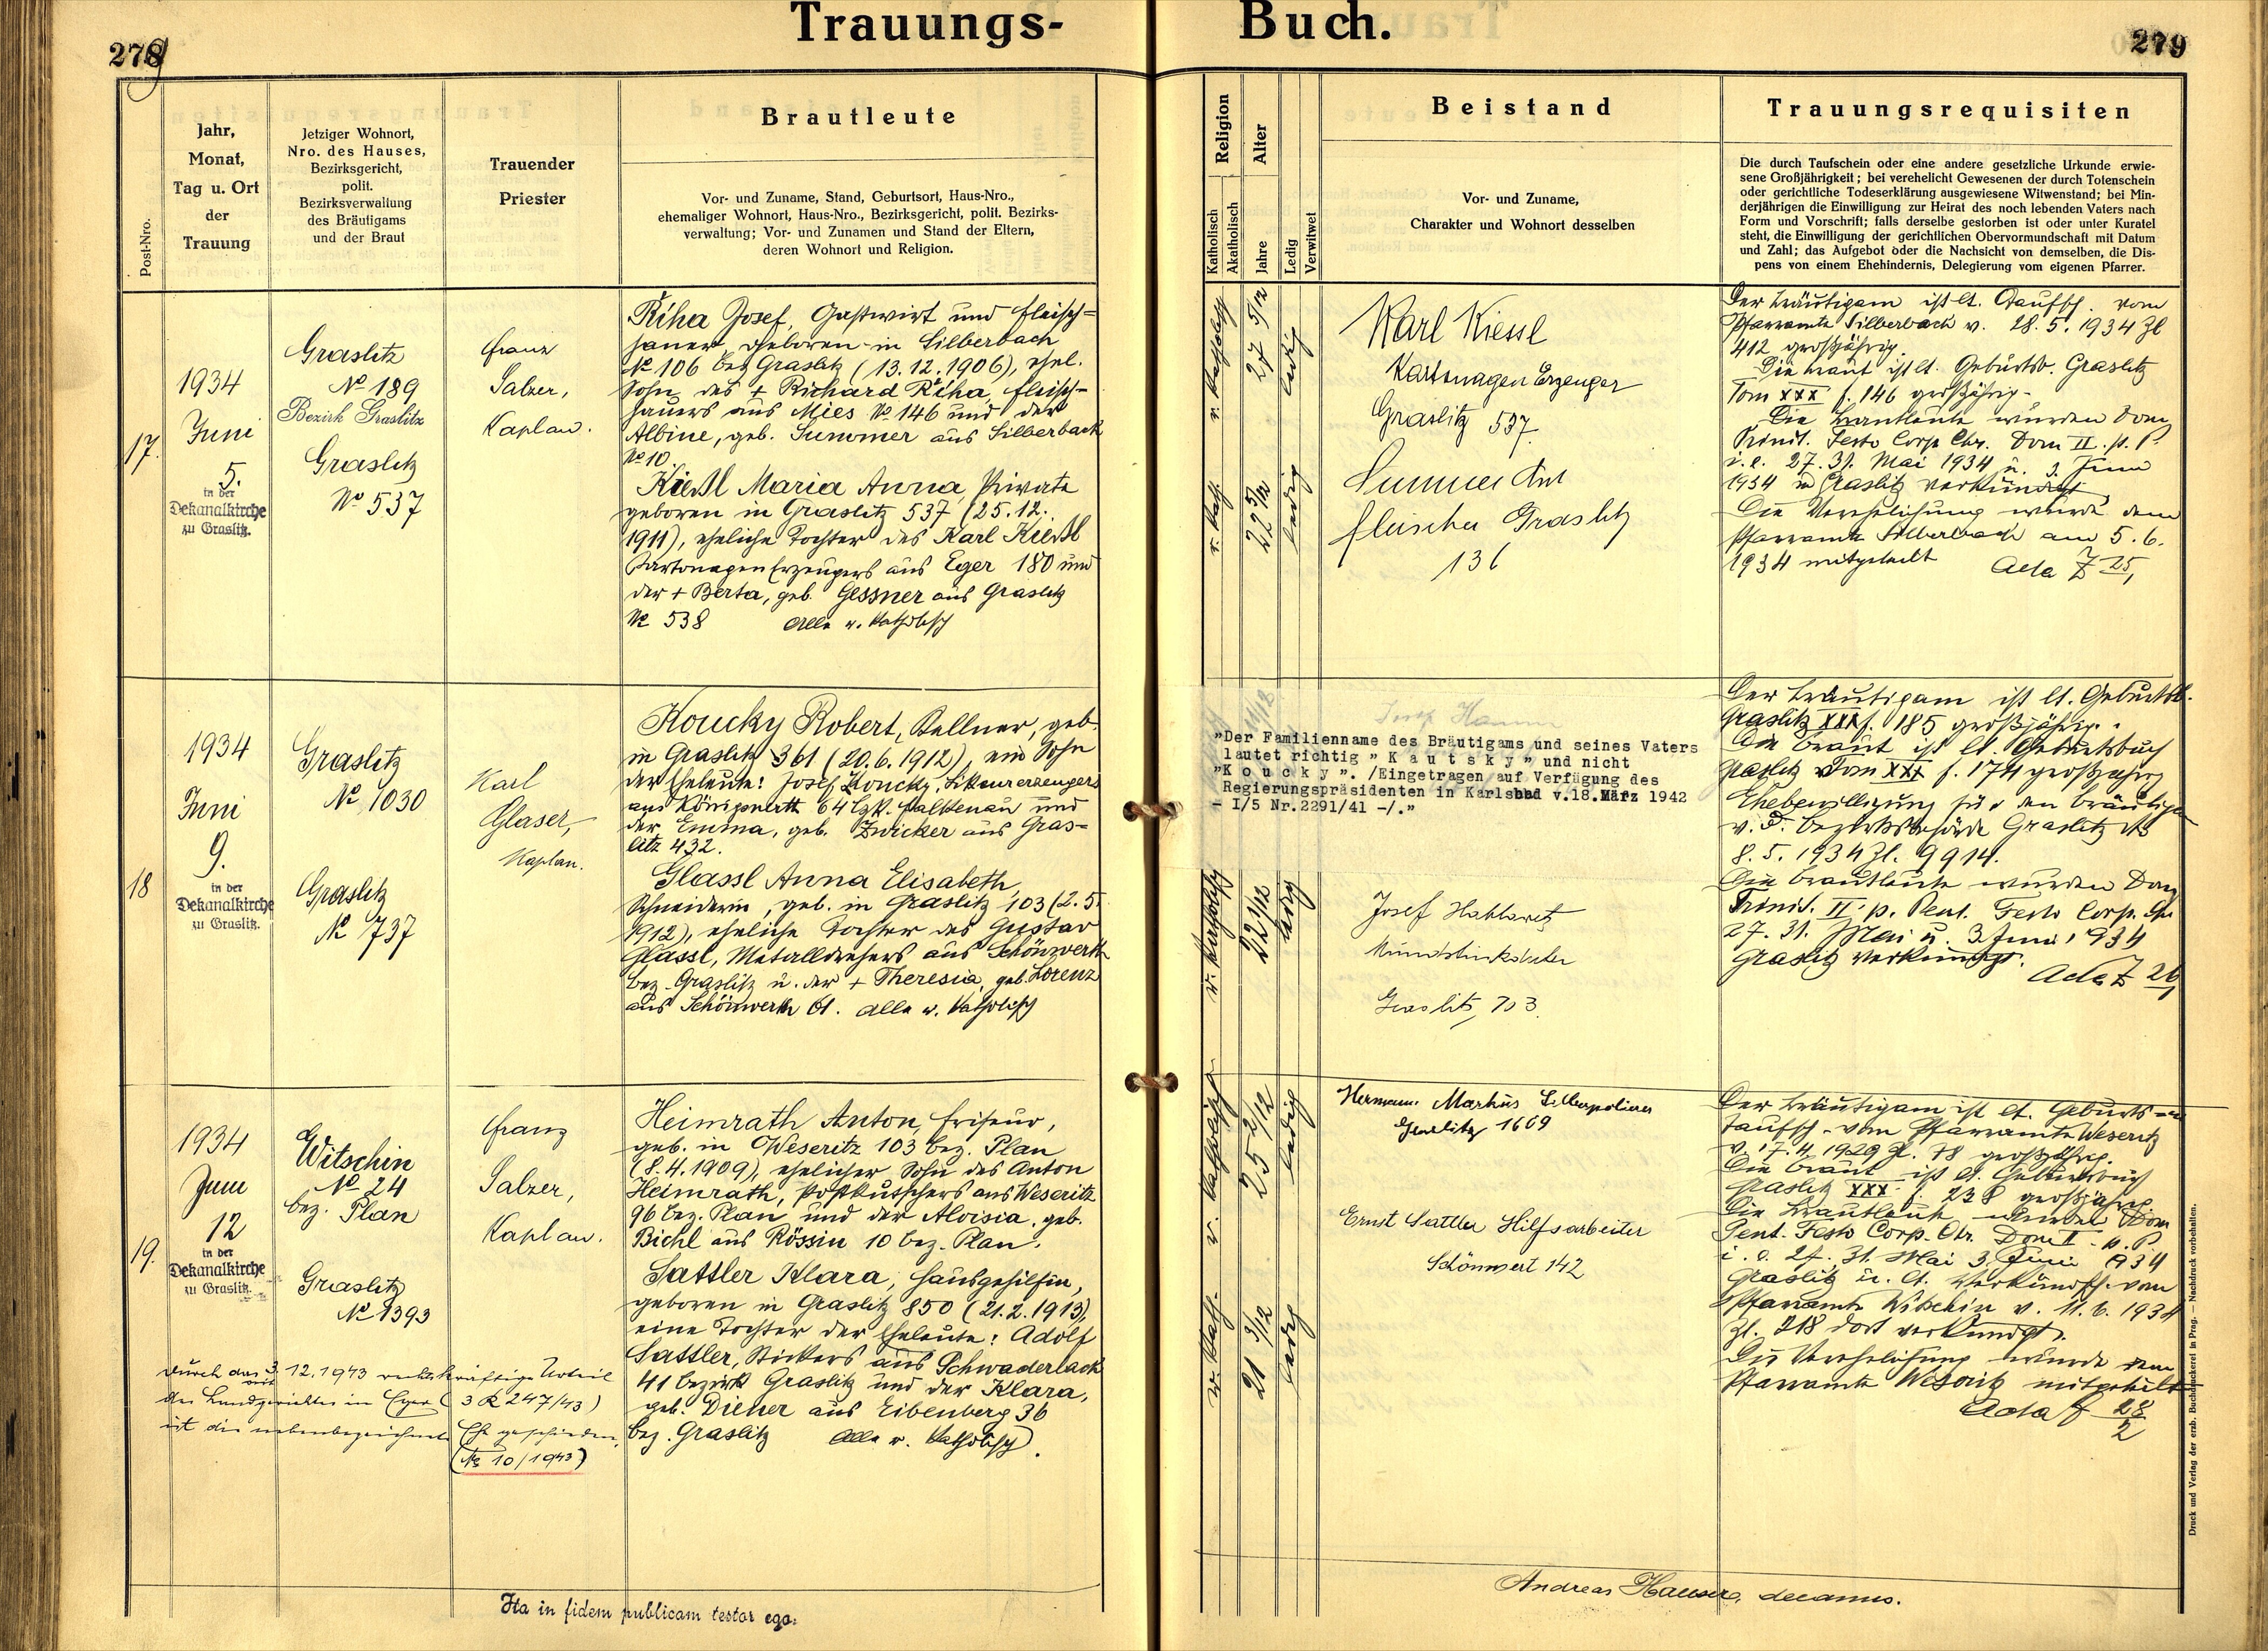 Trauungs-
Buch.
278
279
Post-Nro.
Jahr,
Monat,
Tag u. Ort
der
Trauung
Jetziger Wohnort,
Nro. des Hauses,
Bezirksgericht,
polit.
Bezirksverwaltung
des Bräutigams
und der Braut
Trauender
Priester
Brautleute
Vor- und Zuname, Stand, Geburtsort, Haus-Nro.,
ehemaliger Wohnort, Haus-Nro., Bezirksgericht, polit. Bezirks-
verwaltung; Vor- und Zunamen und Stand der Eltern,
deren Wohnort und Religion.
Religion
Katholisch
Akatholisch
Alter
Jahre
Ledig
Verwitwet
Beistand
Vor- und Zuname,
Charakter und Wohnort desselben
Trauungsrequisiten
Die durch Taufschein oder eine andere gesetzliche Urkunde erwie-
sene Großjährigkeit; bei verehelicht Gewesenen der durch Totenschein
oder gerichtliche Todeserklärung ausgewiesene Witwenstand; bei Min-
derjährigen die Einwilligung zur Heirat des noch lebenden Vaters nach
Form und Vorschrift; falls derselbe gestorben ist oder unter Kuratel
steht, die Einwilligung der gerichtlichen Obervormundschaft mit Datum
und Zahl; das Aufgebot oder die Nachsicht von demselben, die Dis-
pens von einem Ehehindernis, Delegierung vom eigenen Pfarrer.
17.
1934
Juni
5.
in der
Dekanalkirche
zu Graslitz.
Graslitz
No 189
Bezirk Graslitz
Graslitz
No 537
Franz
Salzer,
Kaplan.
Řiha Josef, Gastwirt und Fleisch=
hauer, geboren in Silberbach
No 106 bez Graslitz (13.12.1906), ehel.
Sohn des + Richard Řiha, Fleisch-
hauers aus Mies No 146 und der
Albine, geb. Summer aus Silberbach
No 10.
Kießl Maria Anna, Private
geboren in Graslitz 537 (25.12.
1911), eheliche Tochter des Karl Kießl
Kartonagen Erzeugers aus Eger 180 und
der + Berta, geb. Gessner aus Graslitz
No 538 Alle r. katholisch
r. katholisch
27 5/12
ledig
r. kath.
22 5/12
ledig
Karl Kiessl
Kartonagen Erzeuger
Graslitz 537
Summer Ant
Fleischer Graslitz
136
Der Bräutigam ist lt. Taufsch. vom
Pfarramte Silberbach v. 28.5.1934 Zl
412 großjährig.
Die Braut ist lt. Geburtsb. Graslitz
Tom XXX f. 146 großjährig.
Die Brautleute wurden Dom
Trinit. Festo Corp Chr. Dom II. p. P.
i. e. 27. 31. Mai 1934 u. 3. Juni
1934 in Graslitz verkündigt.
Die Verehelichung wurde dem
Pfarramte Silberbach am 5.6.
1934 mitgeteilt Acta Z 25,
18
1934
Juni
9.
in der
Dekanalkirche
zu Graslitz.
Graslitz
No 1030
Graslitz
No 737
Karl
Glaser,
Kaplan.
Koucky Robert, Kellner, geb.
in Graslitz 361 (20.6.1912), ein Sohn
der Eheleute: Josef Koucky, Likeurerzeugers
aus Königswerth 64 bzk. Falkenau und
der Emma, geb. Zwicker aus Gras=
litz 432.
Glassl Anna Elisabeth,
Schneiderin, geb. in Graslitz 103 (2.5.
1912), eheliche Tochter des Gustav
Glassl, Metalldrehers aus Schönwerth
bez. Graslitz u. der + Theresia, geb. Lorenz
aus Schönwerth 61. Alle r. katholisch
„Der Familienname des Bräutigams und seines Vaters
lautet richtig " K a u t s k y " und nicht
"K o u c k y ". /Eingetragen auf Verfügung des
Regierungspräsidenten in Karlsbad v.18.März 1942
- I/5 Nr.2291/41 -/."
r. katholisch
22 1/12
ledig
Josef
Graslitz 703.
Der Bräutigam ist lt. Geburtsb.
Graslitz XXX f. 185 großjährig.
Die Braut ist lt. Geburtsbuch
Graslitz Tom XXX f. 174 großjährig
Ehebewilligung für den Bräutigam
v. d. Bezirksbehörde Graslitz
8.5.1934 Zl. 9914.
Die Brautleute wurden Dom
Trinit. II. p. Pent. Festo Corp. Chr
27. 31. Mai u. 3. Juni 1934
Graslitz verkündigt.
Acta Z 26,
19.
1934
Juni
12
in der
Dekanalkirche
zu Graslitz.
Witschin
No 24
bez. Plan
Graslitz
No 1393
Franz
Salzer,
Kaplan.
Heimrath Anton, Friseur,
geb. in Weseritz 103 bez. Plan
(8.4.1909), ehelicher Sohn des Anton
Heimrath, Postkutschers aus Weseritz
96 bez. Plan und der Aloisia, geb.
Bichl aus Rössin 10 bez. Plan.
Sattler Klara, Hausgehilfin,
geboren in Graslitz 850 (21.2.1913),
eine Tochter der Eheleute: Adolf
Sattler, Stickers aus Schwaderbach
41 bezirk Graslitz und der Klara,
geb. Diener aus Eibenberg 36
bez. Graslitz Alle r. katholisch.
durch das mit 3.12.1943 rechtskräftige Urteil
des Landgerichtes in Eger (3 R 247/43)
ist die nebenbezeichnete Ehe geschieden.
(No 10/1943)
r. katholisch
25 2/12
ledig
r. kath.
21 3/12
ledig
Hermann Markus Silberpolierer
Graslitz 1669
Ernst Sattler Hilfsarbeiter
Schönwert 142
Der Bräutigam ist lt. Geburts- u
Taufsch. vom Pfarramte Weseritz
v. 17.4.1929 Zl. 78 großjährig.
Die Braut ist lt. Geburtsbuch
Graslitz XXX f. 238 großjährig.
Die Brautleute wurden Dom
Pent. Festo Corp. Chr. Dom II. p. P.
i. e. 27. 31. Mai 3. Juni 1934
Graslitz u. lt. Verkündsch. vom
Pfarramte Witschin v. 11.6.1934
Zl. 218 dort verkündigt.
Die Verehelichung wurde dem
Pfarramte Weseritz mitgeteilt
Acta f 28/2
Ita in fidem publicam testor ego:
Andreas Hauser, decanus.
Druck und Verlag der erzb. Buchdruckerei in Prag. — Nachdruck vorbehalten.